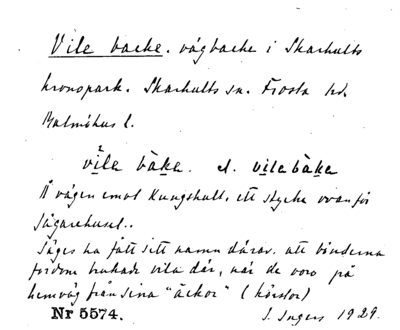 Vile backe. vägbacke i Skarhults
kronopark. Skarhults sn. Frosta hd.
Malmöhus l.
vila bàka. el. vilabàka
Å vägen emot Kungshult, ett stycke ovanför
Jägarehuset..
Säges ha fått sitt namn därav, att bönderna
fordom brukade vila där, när de voro på
hemväg från sina "äckor" (körslor)
Nr 5574. J. Ingers 1929.